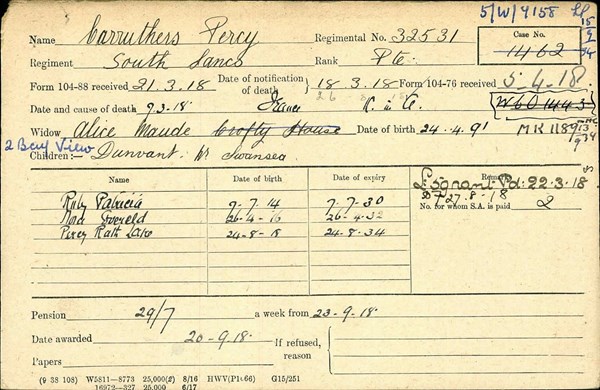 5/W/4158 LP
15
9
34
Name Carruthers Percy Regimental No. 32531 Case No.
Regiment South Lancs Rank Pte. 1462
Form 104-88 received 21.3.18 Date of notification of death 18.3.18 Form 104-76 received 5.4.18.
Date and cause of death 9.3.18 France K. in A. W60 1443
Widow Alice Maude Crofty House Date of birth 24.4.91 MK 1189
2 Beny View
Children:— Dunvant Nr Swansea
Name Date of birth Date of expiry Remarks
L.S. grant Pd. 22.3.18
Ruby Patricia 7-7.14 7-7.30 27.8.18
No. for whom S.A. is paid 2
26-4-16 26-4-32
Percy 24-8-18 24.8.34
Pension 29/7 a week from 23-9-18.
Date awarded 20-9.18. If refused, reason
Papers
(9 38 108) W5811—8773 25,000(2) 8/16 HWV(P1566) G15/251
16972—327 25,000 6/17